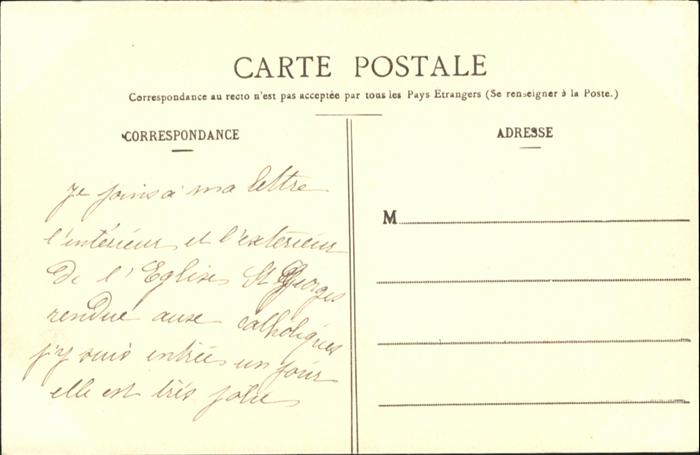 CARTE POSTALE
Correspondance au recto n'est pas acceptée par tous les Pays Etrangers (Se renseigner à la Poste.)
CORRESPONDANCE
Je joins à ma lettre
l'intérieur et l'exterieur
de l'Eglise St Georges
rendue aux catholiques
j'y suis entrée un jour
elle est très jolie
ADRESSE
M